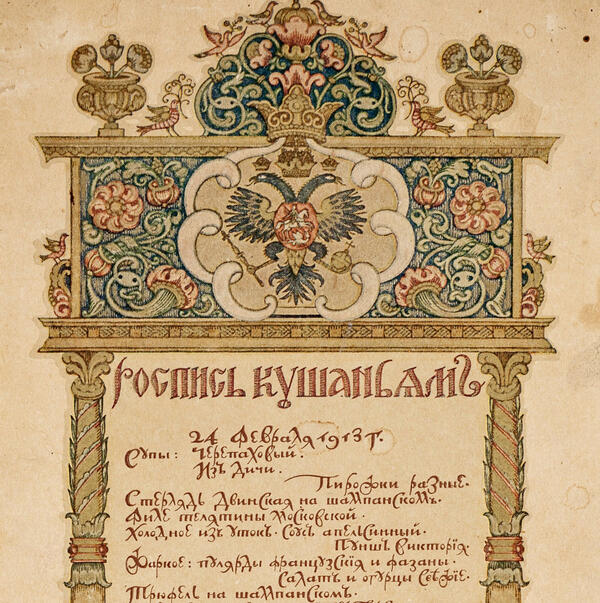 Роспись кушаньямъ
24 Февраля 1913 г.
Супы: Черепаховый.
Изъ дичи.
Пирожки разные.
Стерлядь Двинская на шампанскомъ.
Филе телятины московской.
Холодное изъ утокъ. Соусъ апельсинный.
Пуншъ Викторія
Жаркое: пулярды французскія и фазаны.
Салатъ и огурцы свѣжіе.
Трюфель на шампанскомъ.